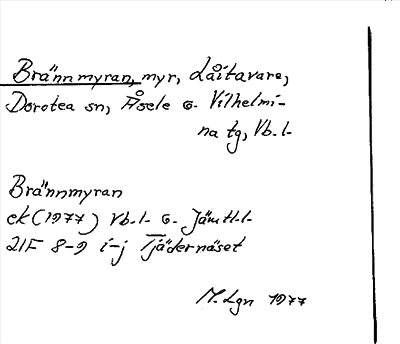 Brännmyran, myr, Låitavare,
Dorotea sn, Åsele o. Vilhelmi-
na tg, Vb.l.
Brännmyran
ek (1977) Vb.l. o. Jämtl.l.
21F 8-9 i-j Tjädernäset
M. Lgn 1977